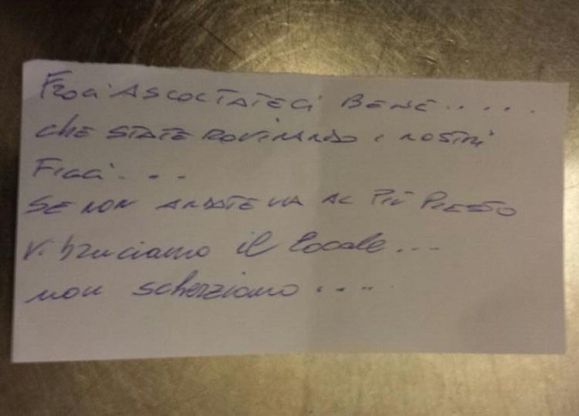 FROCI ASCOLTATECI BENE.....
CHE STATE ROVINANDO I NOSTRI
FIGLI...
SE NON ANDATE VIA AL PIÙ PRESTO
Vi bruciamo il locale...
non scherziamo....